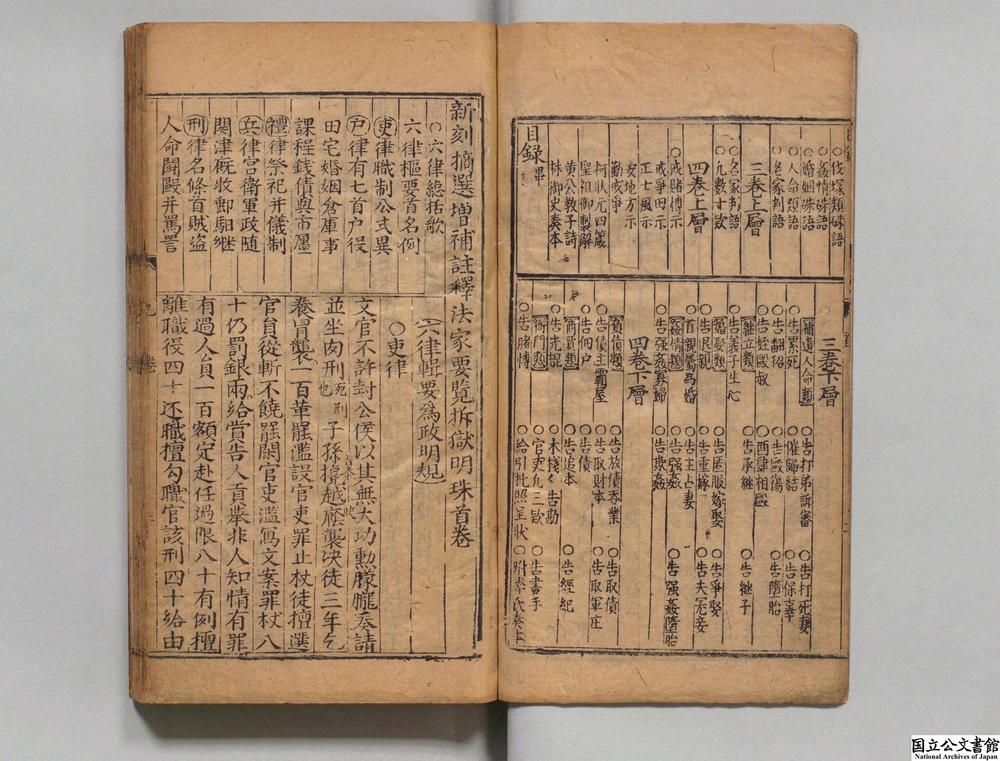 ○伐塚類硃語
○姦情硃語
○婚姻硃語
○人命類語
○名家判語
三卷上層
○名家判語
○九數十欵
四卷上層
○戒賭博示
○戒爭田示
○正士風示
○安地方示
○勸戒爭
○柯狀元四箴
○聖祖御製解
○黃公教子詩
○林御史奏本
目錄畢
三卷下層
補遺人命類
○告打弟訴審
○告打死妻
○告累死
○催歸結
○告保辜
○告翻招
○告毆傷
○告墮胎
○告姪毆叔
○酉肆相毆
繼立類
○告承繼
○告繼子
○告義子生心
婚娶類
○告匿服嫁娶
○告爭娶
○告悔親
○告重嫁
○告夫冤妾
○首親屬爲婚
○告主占妻
姦情類
○告强姦
○告强姦墮胎
○告强姦寡婦
○告欺姦
四卷下層
負債類
○告放債吞業
○告取債
○告債主霸屋
○告取財本
○告取軍庄
○告佃戶
○告債
商賈類
○告追本
○告經紀
○告光棍
○告勘
衙門類
○官吏九三欵
○告書手
○告賭博
○給引批照呈狀
新刻摘選增補註釋法家要覽折獄明珠首卷
○六律總括歌
六律樞要首名例
吏律職制公式異
戶律有七首户役
田宅婚姻倉庫事
課程錢債與市廛
禮律祭祀并儀制
兵律宫衛軍政隨
関津厩牧郵驲継
刑律名條首賊盗
人命鬪毆并罵詈
六律輯要爲政明規
○吏律
文官不許封公侯以其無大功勲朦朧奏請
並坐肉刑死刑也子孫搀越廕襲决徒三年乞
養冒襲一百董罷濫設官吏罪止杖徒擅選
官自從斬不饒罷閑官吏濫寫文案罪杖八
十仍罰銀兩給賞告人貢舉非人知情有罪
有過人員一百額定赴任過限八十有例擅
離職役四十還職擅勾職官該刑四十給由
国立公文書館
National Archives of Japan